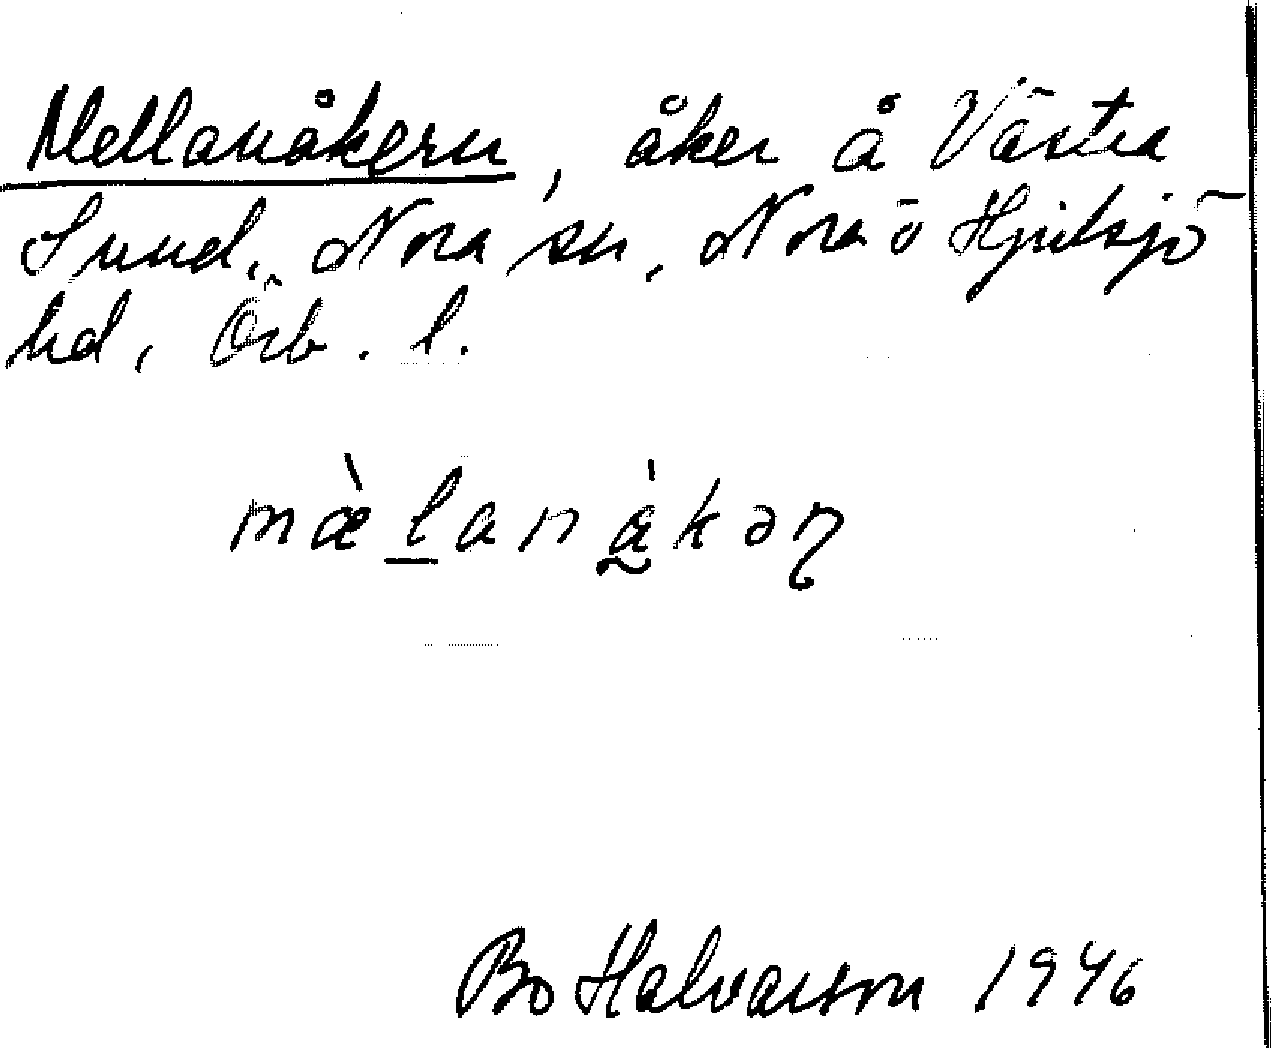 Mellanåkern, åker å Västra
Sund, Nora sn, Nora ö Hjulsjö
hd, Örb. l.
mæ̀l̲anàkəɳ
Bo Halvarson 1946